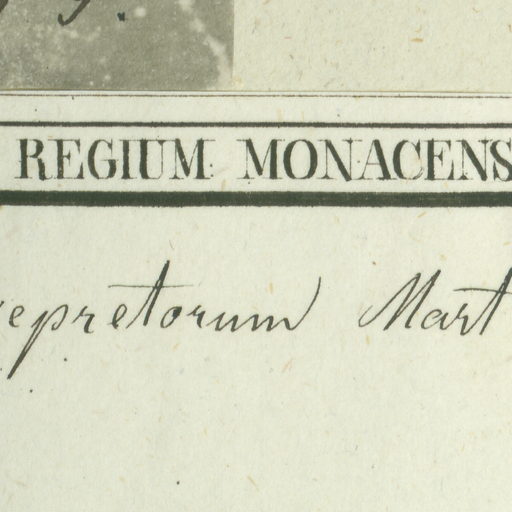 9.
REGIUM MONACENS
vepretorum Mart